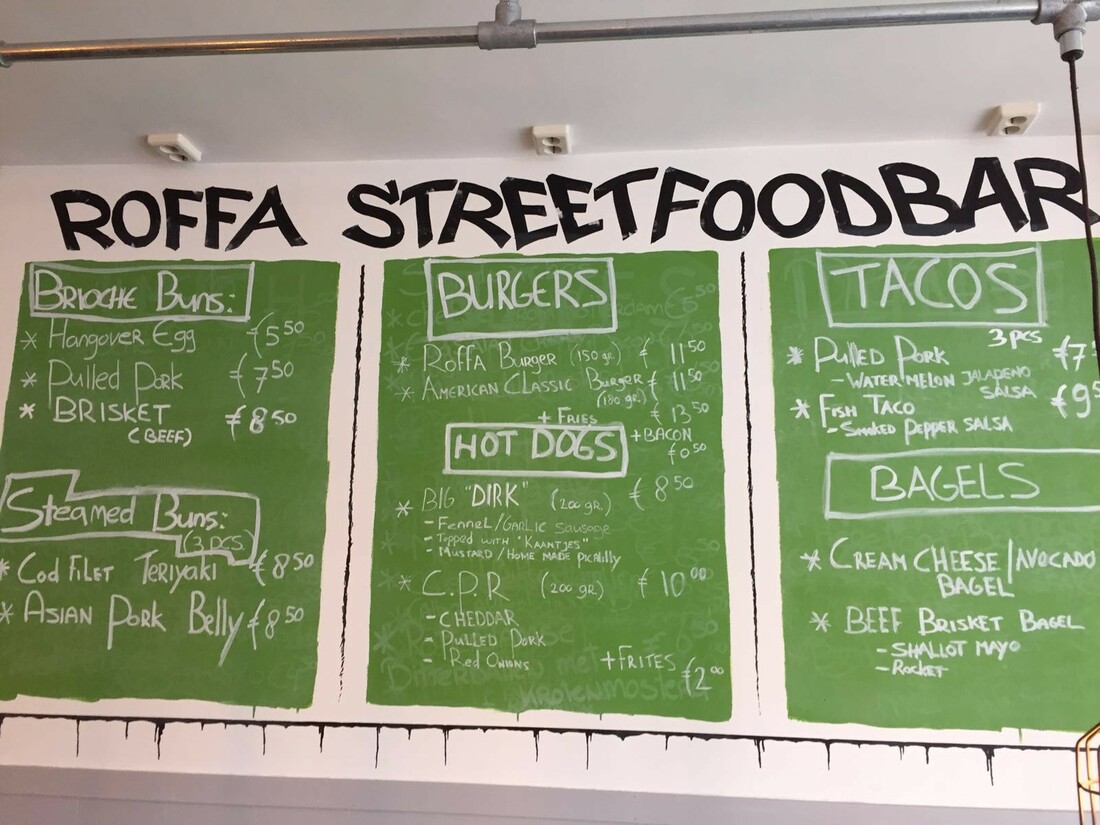 ROFFA STREETFOODBAR
BRIOCHE BUNS:
* Hangover Egg €5 50
* Pulled Pork €7 50
* BRISKET €8 50
(BEEF)
Steamed Buns:
(3 PCS)
* Cod Filet Teriyaki €8 50
* Asian Pork Belly €8 50
BURGERS
* Roffa Burger (150 gr.) € 11 50
* American Classic Burger € 11 50
(180 gr.)
+ Fries € 13 50
+BACON
€0 50
HOT DOGS
* BIG "DIRK" (200 gr.) € 8 50
- Fennel/Garlic Sausage
- Topped with "Kaantjes"
- Mustard/Home made Picalilly
* C.P.R (200 gr.) € 10 00
- CHEDDAR
- Pulled Pork
- Red Onions
+FRITES €2 00
TACOS
3 PCS
* Pulled Pork €7
- WATERMELON JALADENO
SALSA
* Fish Taco €9 5
- Smoked Pepper SALSA
BAGELS
* CREAM CHEESE/AVOCADO
BAGEL
* BEEF BRISKET BAGEL
- SHALLOT MAYO
- Rocket